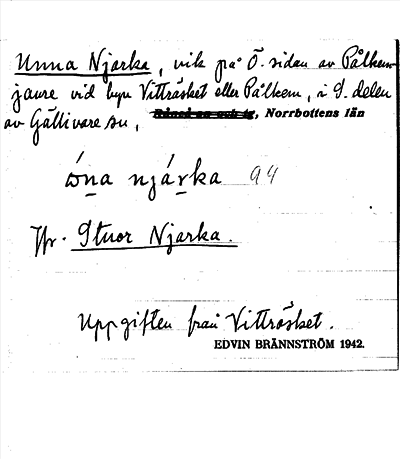 Unna Njarka, vik på Ö. sidan av Pålkem-
jaure vid byn Vitträsket eller Pålkem, i S. delen
av Gällivare sn, Råneå sn och tg, Norrbottens län
ṓna njárka 94
Jfr. Stuor Njarka.
Uppgiften från Vitträsket.
EDVIN BRÄNNSTRÖM 1942.